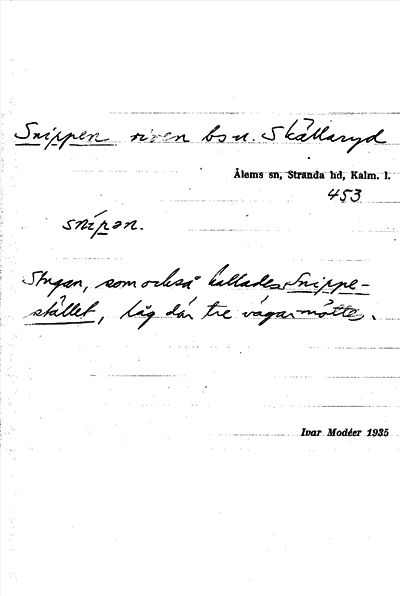 Snippen riven bs u. Skällaryd
Ålems sn, Stranda hd, Kalm. l.
453
snípən.
Stugan, som också kallades Snippe-
stället, låg där tre vägar mötte.
Ivar Modéer 1935